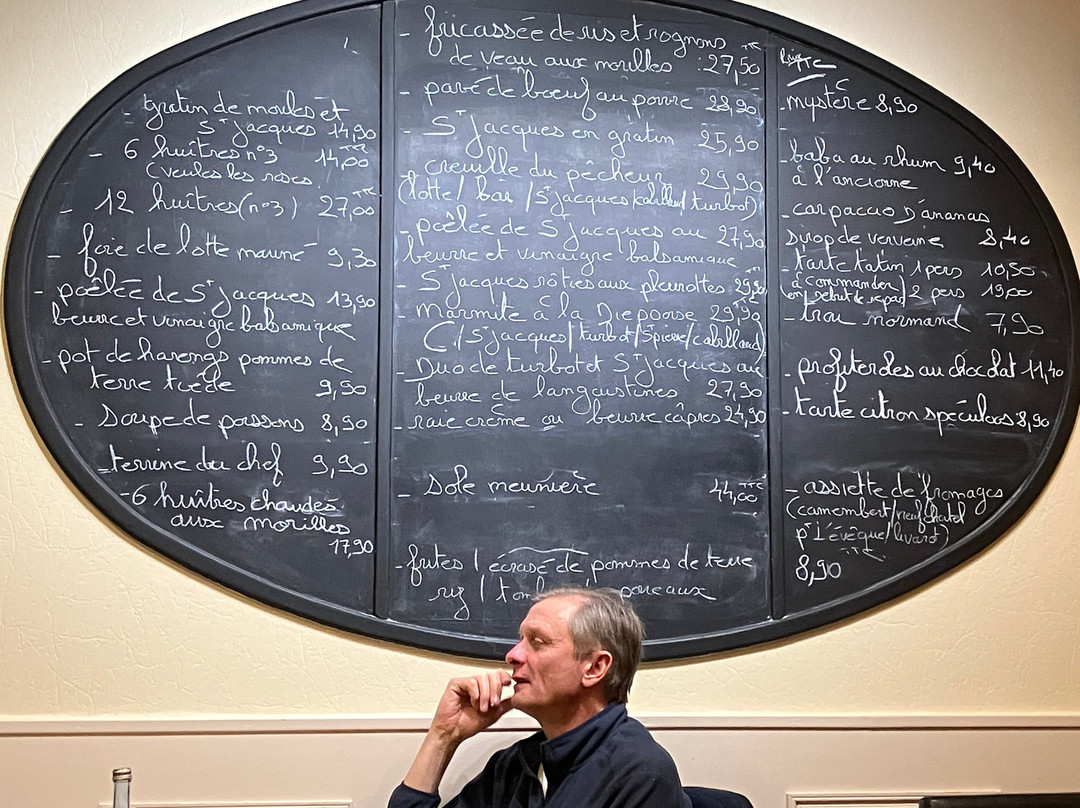 - gratin de moules et
St Jacques 14,90
- 6 huîtres n°3 14,00
(veules les roses
- 12 huîtres (n°3) 27,00 TTC
- foie de lotte mariné 9,30
- poêlée de St Jacques 13,90
beurre et vinaigre balsamique
- pot de harengs pommes de
terre tiède 9,90
- soupe de poissons 8,90
- terrine du chef 9,90
- 6 huîtres chaudes
aux morilles
17,90
- fricassée de ris et rognons
de veau aux morilles : 27,50 TTC
- pavé de bœuf au poivre 28,90
- St Jacques en gratin 25,90
- creuille du pêcheur 29,90
(lotte / bar / St Jacques / cabillaud / turbot)
- poêlée de St Jacques au 27,90
beurre et vinaigre balsamique
- St Jacques rôties aux pleurottes : 29,90
- Marmite à la Dieppoise 29,90 TTC
(St Jacques / turbot / St pierre / cabillaud)
- Duo de turbot et St Jacques au
beurre de langoustines 27,90
- raie crème ou beurre câpres 24,90
- sole meunière 44,00 TTC
- frites / écrasé de pommes de terre
riz / poireaux
TTC
- mystère 8,90
- baba au rhum 9,40
à l'ancienne
- carpaccio d'ananas
sirop de verveine 8,40
- tarte tatin 1 pers 10,50
à commander
(en début de repas) 2 pers 19,00
- trou normand 7,90
- profiteroles au chocolat 11,40
- tarte citron spéculoos 8,90
- assiette de fromages
(camembert / neufchatel
pt l'évêque / livarot)
8,90